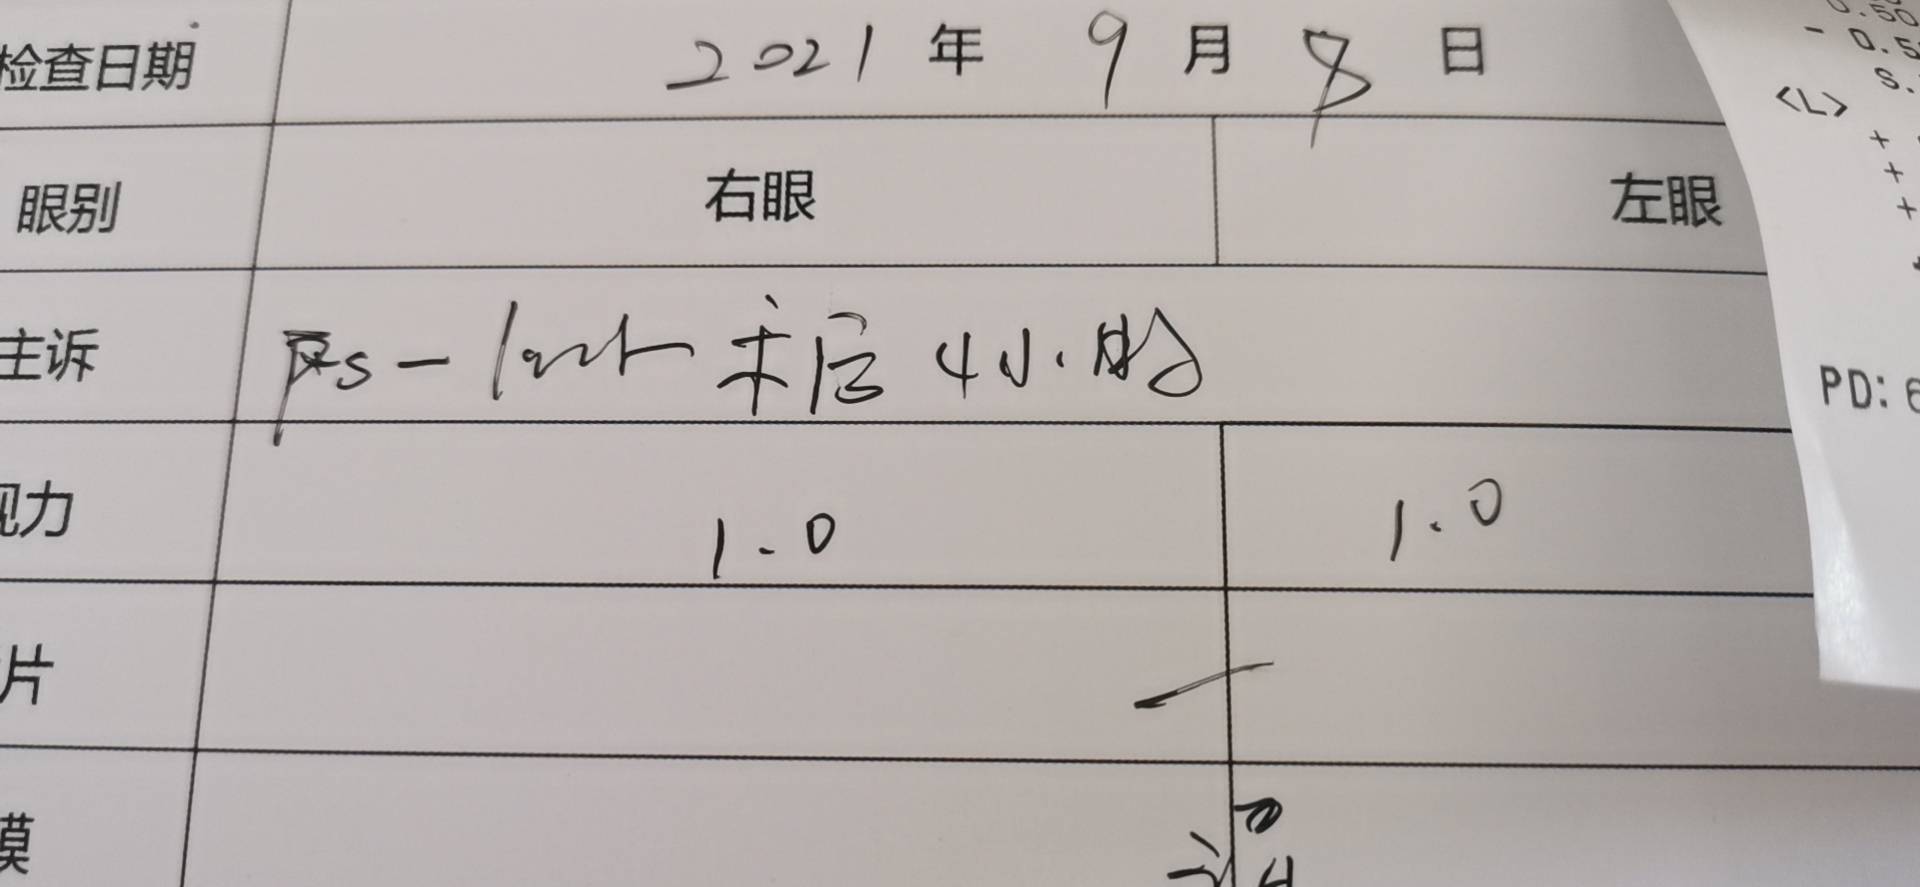 检查日期 2021 年 9 月 8 日
眼别 右眼 左眼
主诉 Fs-lasik术后4小时
视力 1.0 1.0
片
膜
0.50
- 0.5
S.
<L>
+
+
+
PD: 6